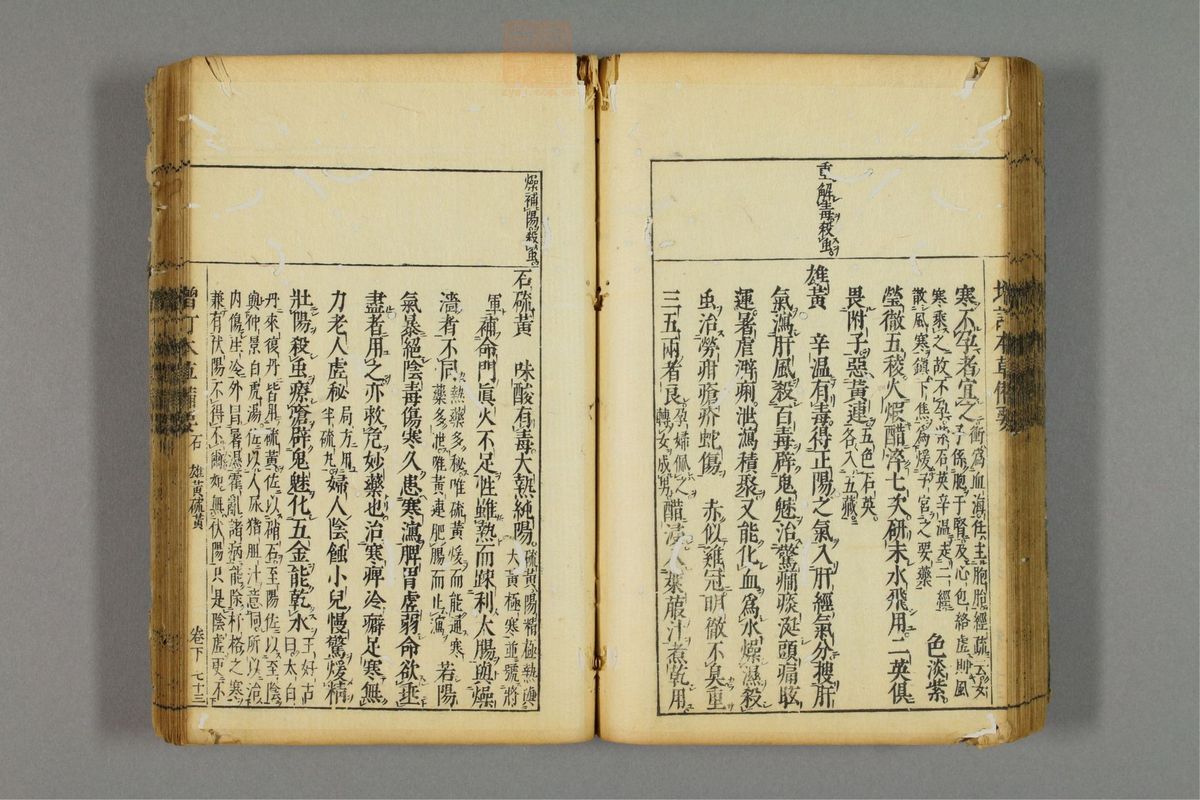 重解毒殺虫
寒不孕者宜之衝爲血海任主胞胎經疏云女子係胞于腎及心包絡虛則風
寒乘之故不孕紫石英辛温走二經散風寒鎮下焦爲煖子宮之要藥色淡紫
瑩徹五稜火煆醋淬七次研末水飛用二英俱
畏附子惡黃連五色石英各入五藏
雄黃 辛温有毒得正陽之氣入肝經氣分搜肝
氣瀉肝風殺百毒辟鬼魅治驚癎痰涎頭痛眩
運暑瘧澼痢泄瀉積聚又能化血爲水燥濕殺
虫治勞疳瘡疥蛇傷 赤似雞冠明徹不臭重
三五兩者良孕婦佩之轉女成男醋浸入萊菔汁煮乾用
燥補陽殺虫
石硫黃 味酸有毒大熱純陽硫黃陽精極熱與大黃極寒並號將
軍補命門眞火不足性雖熱而疎利大腸與燥
濇者不同熱藥多秘唯硫黃煖而能通寒藥多泄唯黃連肥腸而止瀉若陽
氣暴絕陰毒傷寒久患寒瀉脾胃虛弱命欲垂
盡者用之亦救危妙藥也治寒痺冷癖足寒無
力老人虛秘局方用半硫丸婦人陰蝕小兒慢驚煖精
壯陽殺虫療瘡辟鬼魅化五金能乾汞王好古曰太白
丹來復丹皆用硫黃佐以硝石至陽佐以至陰
與仲景白虎湯佐以人尿猪胆汁意同所以治
内傷生冷外冒暑濕霍亂諸病能除扞格之寒
兼有伏陽不得不爾如無伏陽只是陰虛更不
石 雄黃硫黃
卷下 七十三